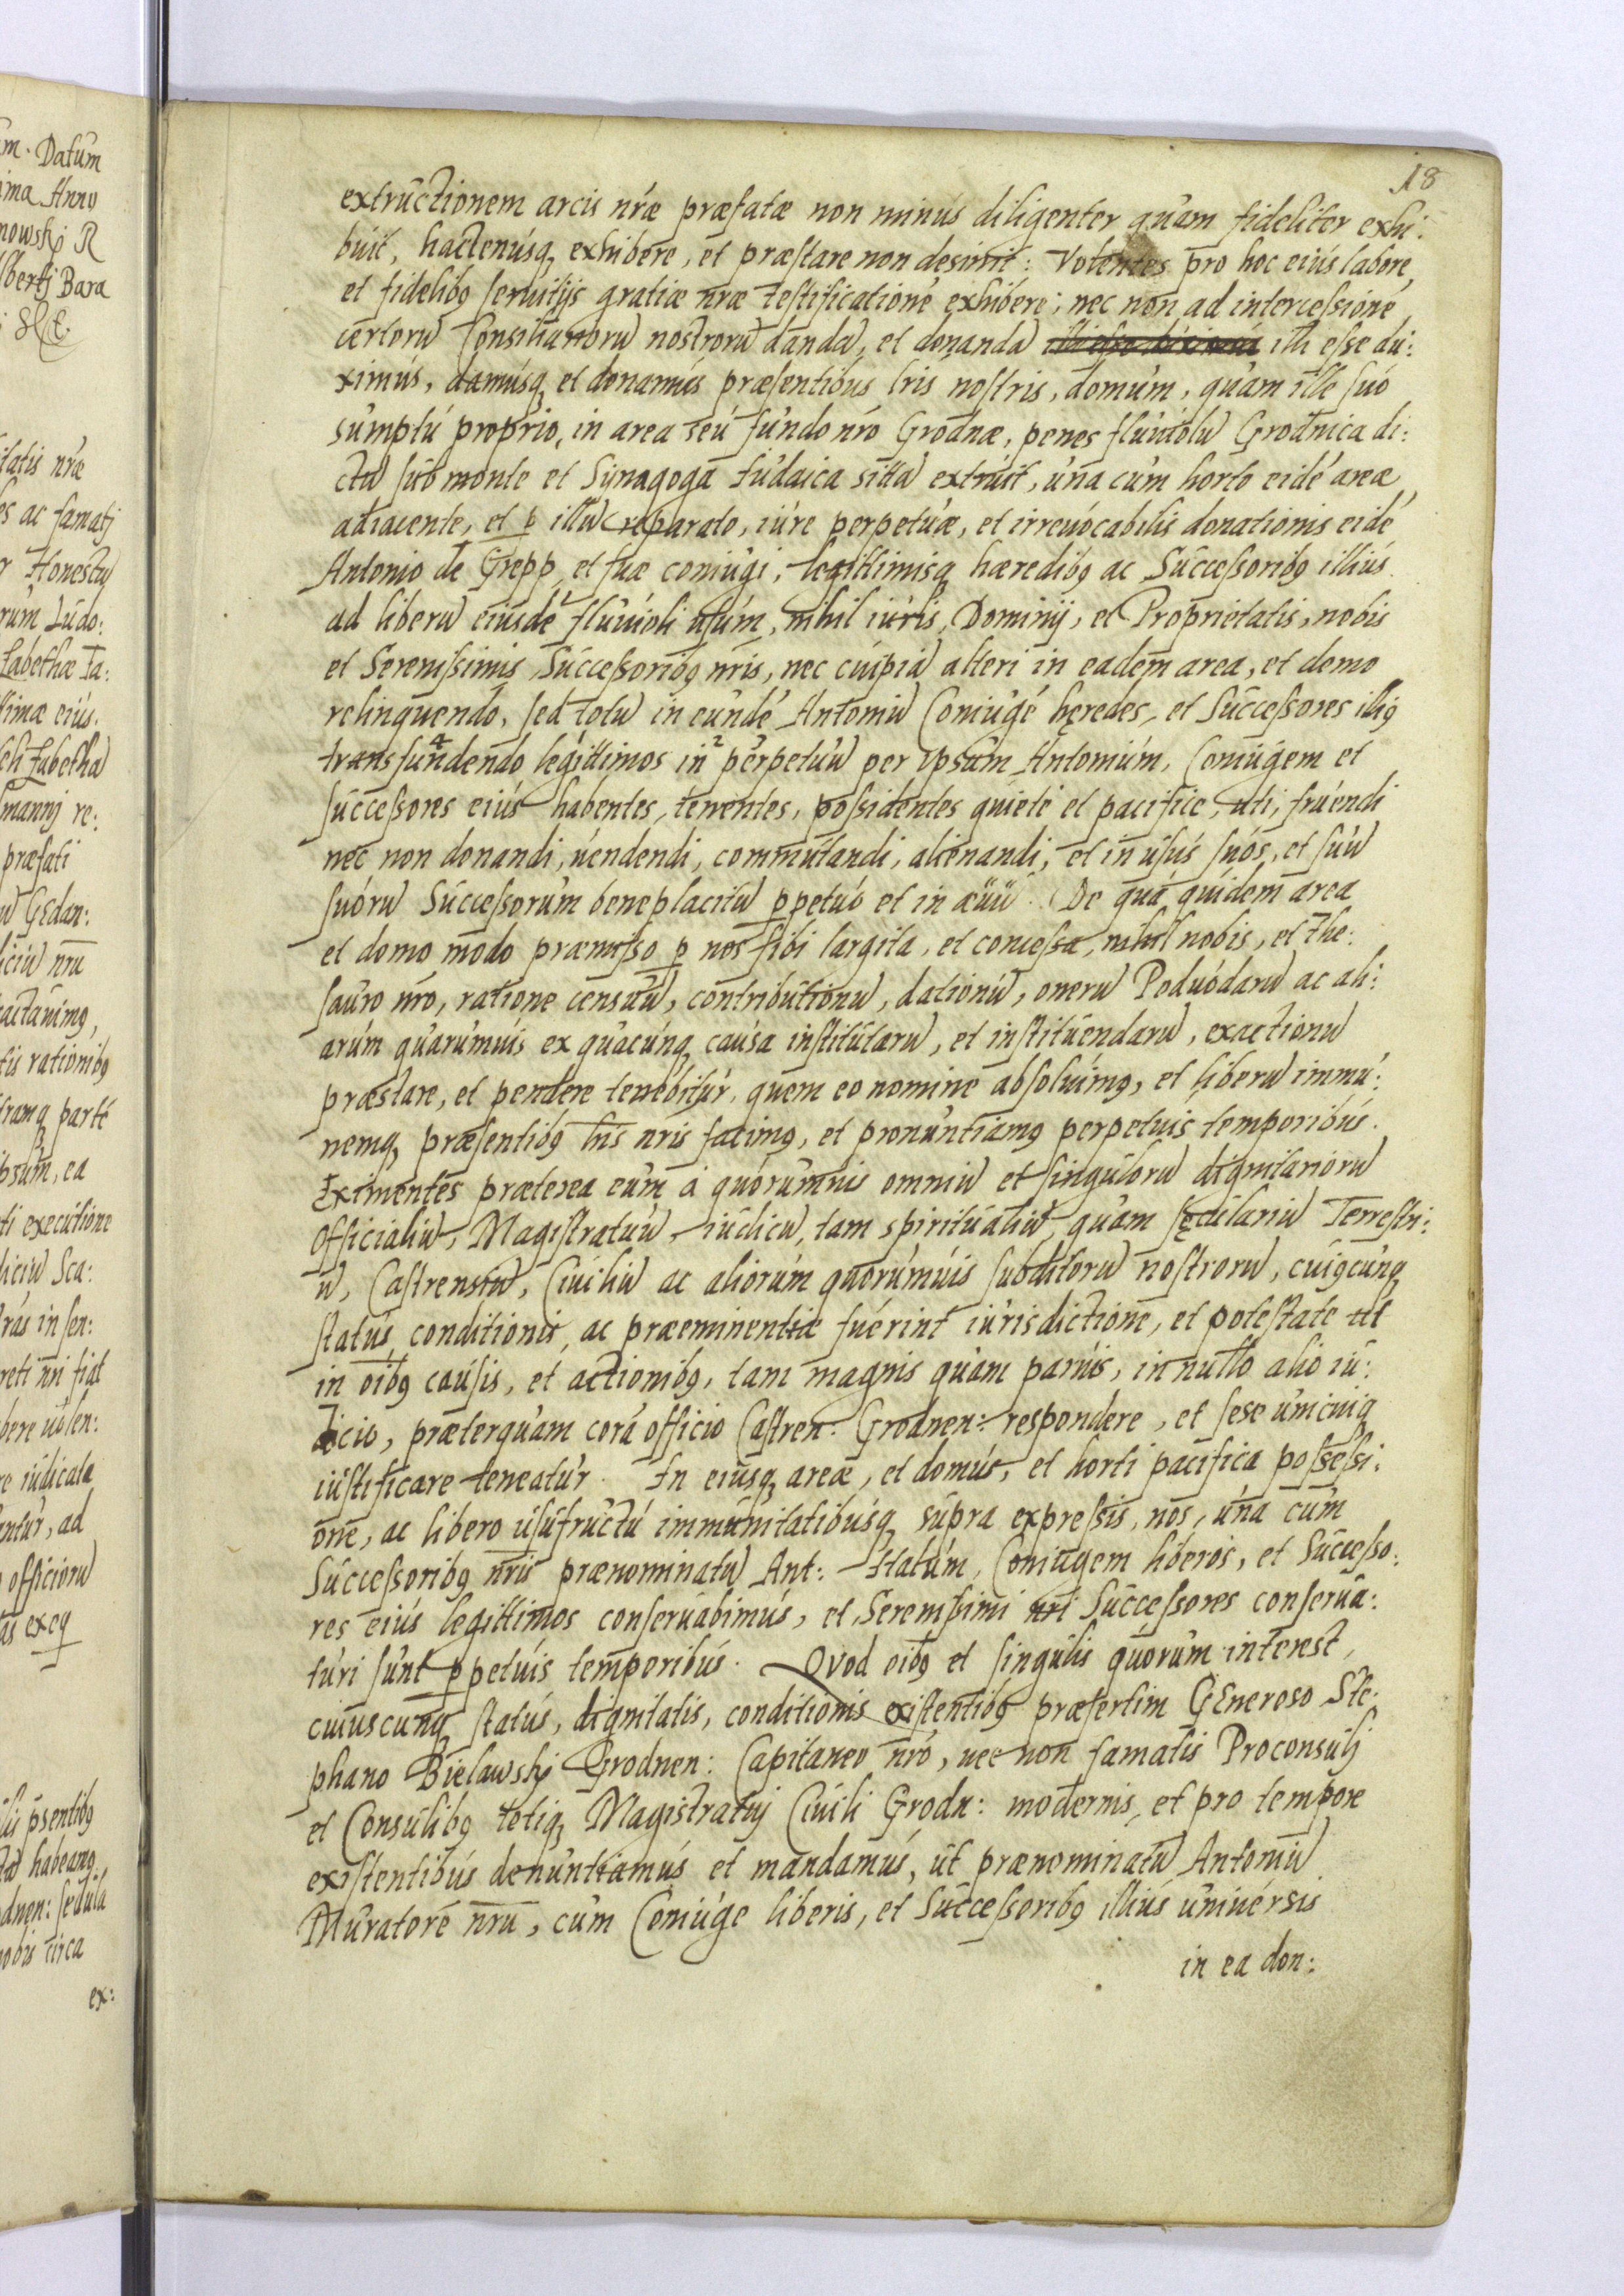 18
extructionem arcis nræ præfatæ non minús diligenter quam fideliter exhi:
buit, hactenúsq, exhibere, et præstare non desinit: Volentes pro hoc eiús labore,
et fidelibg seruitijs gratiæ nræ testificationé exhibére; nec non ad intercessioné
certorū Consiliariorū nostrorū dandā, et donandā illi esse du:
ximús, damúsq, et donamús præsentibus lris nostris, domum, quam ille suó
sumptú proprio, in area seú fundo nró Grodnæ, penes fluuiolū Grodnica di:
ctū sub monte et Synagoga Iudaica sittā extruit, uná cum horto eidé areæ
adiacente, et p illū reparato, iúre perpetuæ, et irreuocabilis donationis eidé
Antonio de Grepp, et suæ coniugi, legittimisq hæredibg ac Successoribg illiús.
ad liberū eiusdé fluuioli usúm, nihil iúris, Dominij, et Proprietatis, nobis
et Serenissimis Successoribg nris, nec cuipiā alteri in eadem area, et domo
relinquendo, sed totū in eundé Antoniū Coniugé hęredes, et Successores illig
transfundendo legittimos in perpetuū per ipsum Antonium, Coniugem et
successores eiús habentes, tenentes, possidentes quieté et pacificè, uti, frúendi
nec non donandi, uéndendi, commutandi, alienandi, et in usús suós, et suū
suórū Successorum beneplacitū ppetuó et in æuū. De quá quidem area
et domo modo præmisso p nos sibi largita, et concessa, nihil nobis, et the:
sauro nro, ratione censuū, contributionū, dationū, onerū Poduódarū ac ali:
arúm quarumuis ex quacúnq causa institutarū, et instituendarū, exactionū
præstare, et pendere tenebitúr, quem eo nomine absoluimg, et liberū immú:
nemq, præsentibg lris nris facimg, et pronuntiamg perpetuis temporibús.
Eximentes præterea eum á quórumuis omniū et singulorū dignitariorū
Officialiū, Magistratuū, iudicū, tam spiritualiū, quam sęculariū Terrestri:
ū, Castrensiū, Ciuiliū ac aliorum quorumuis subditorū nostrorū, cuigcunq
statús, conditionis, ac præeminentiæ fuérint iurisdictione, et potestate ut
in oibg causis, et actionibg, tam magnis quam paruis, in nullo alio iu:
dicio, præterquam corá officio Castren: Grodnen: respondere, et sese unicuig
iustificare teneatur. In eiusq, areæ, et domús, et horti pacifica possessi:
one, ac libero usufructú immunitatibusq, supra expressis, nos, úna cum
Successoribg nris prænominatū Ant: Italúm, Coniugem liberos, et Successo:
res eiús legittimos conseruabimús, et Serenissimi nri Successores conserua:
turi sunt ppetuis temporibus. Qvod oibg et singulis quorum interest,
cuiuscunq, status, dignitatis, conditionis existentibg præsertim GEneroso Ste:
phano Bielawskj Grodnen: Capitaneo nró, nec non famatis Proconsulj
et Consulibg totiq, Magistratuj Ciuili Grodn: modernis, et pro tempore
existentibús denuntiamus et mandamus, út prænominatū Antoniū
Muratoré nrū, cum Coniúge liberis, et Successoribg illiús uniuérsis
in ea don: